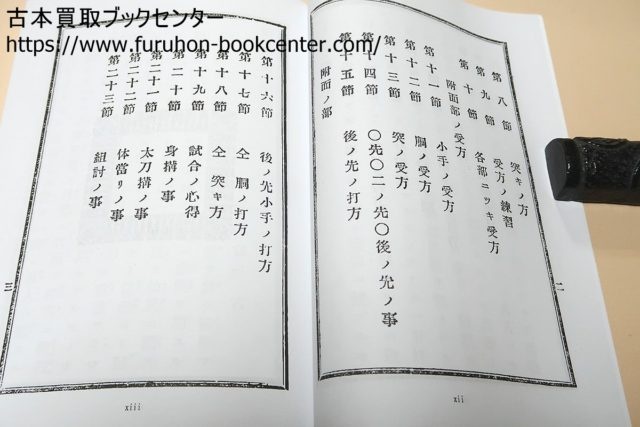 古本買取ブックセンター
https://www.furuhon-bookcenter.com/
第八節 突キノ方
第九節 受方ノ練習
第十節 各部ニツキ受方
附面部ノ受方
第十一節 小手ノ受方
第十二節 胴ノ受方
第十三節 突ノ受方
第十四節 〇先〇二ノ先〇後ノ先ノ事
第十五節 後ノ先ノ打方
附面ノ部
二
xii
第十六節 後ノ先小手ノ打方
第十七節 仝 胴ノ打方
第十八節 仝 突キ方
第十九節 試合ノ心得
第二十節 身搆ノ事
第二十一節 太刀搆ノ事
第二十二節 体當リノ事
第二十三節 組討ノ事
三
xiii